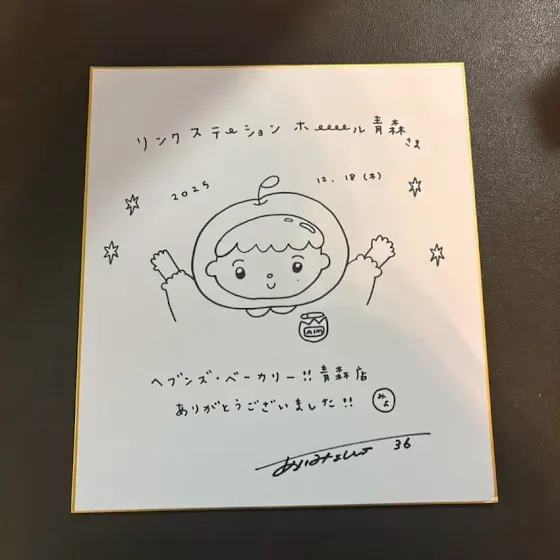 リンクステーションホーーーール青森さま
2025 12.18(木)
AIM
ヘブンズ・ベーカリー!!青森店
ありがとうございました!! みよ
あいみょん 36